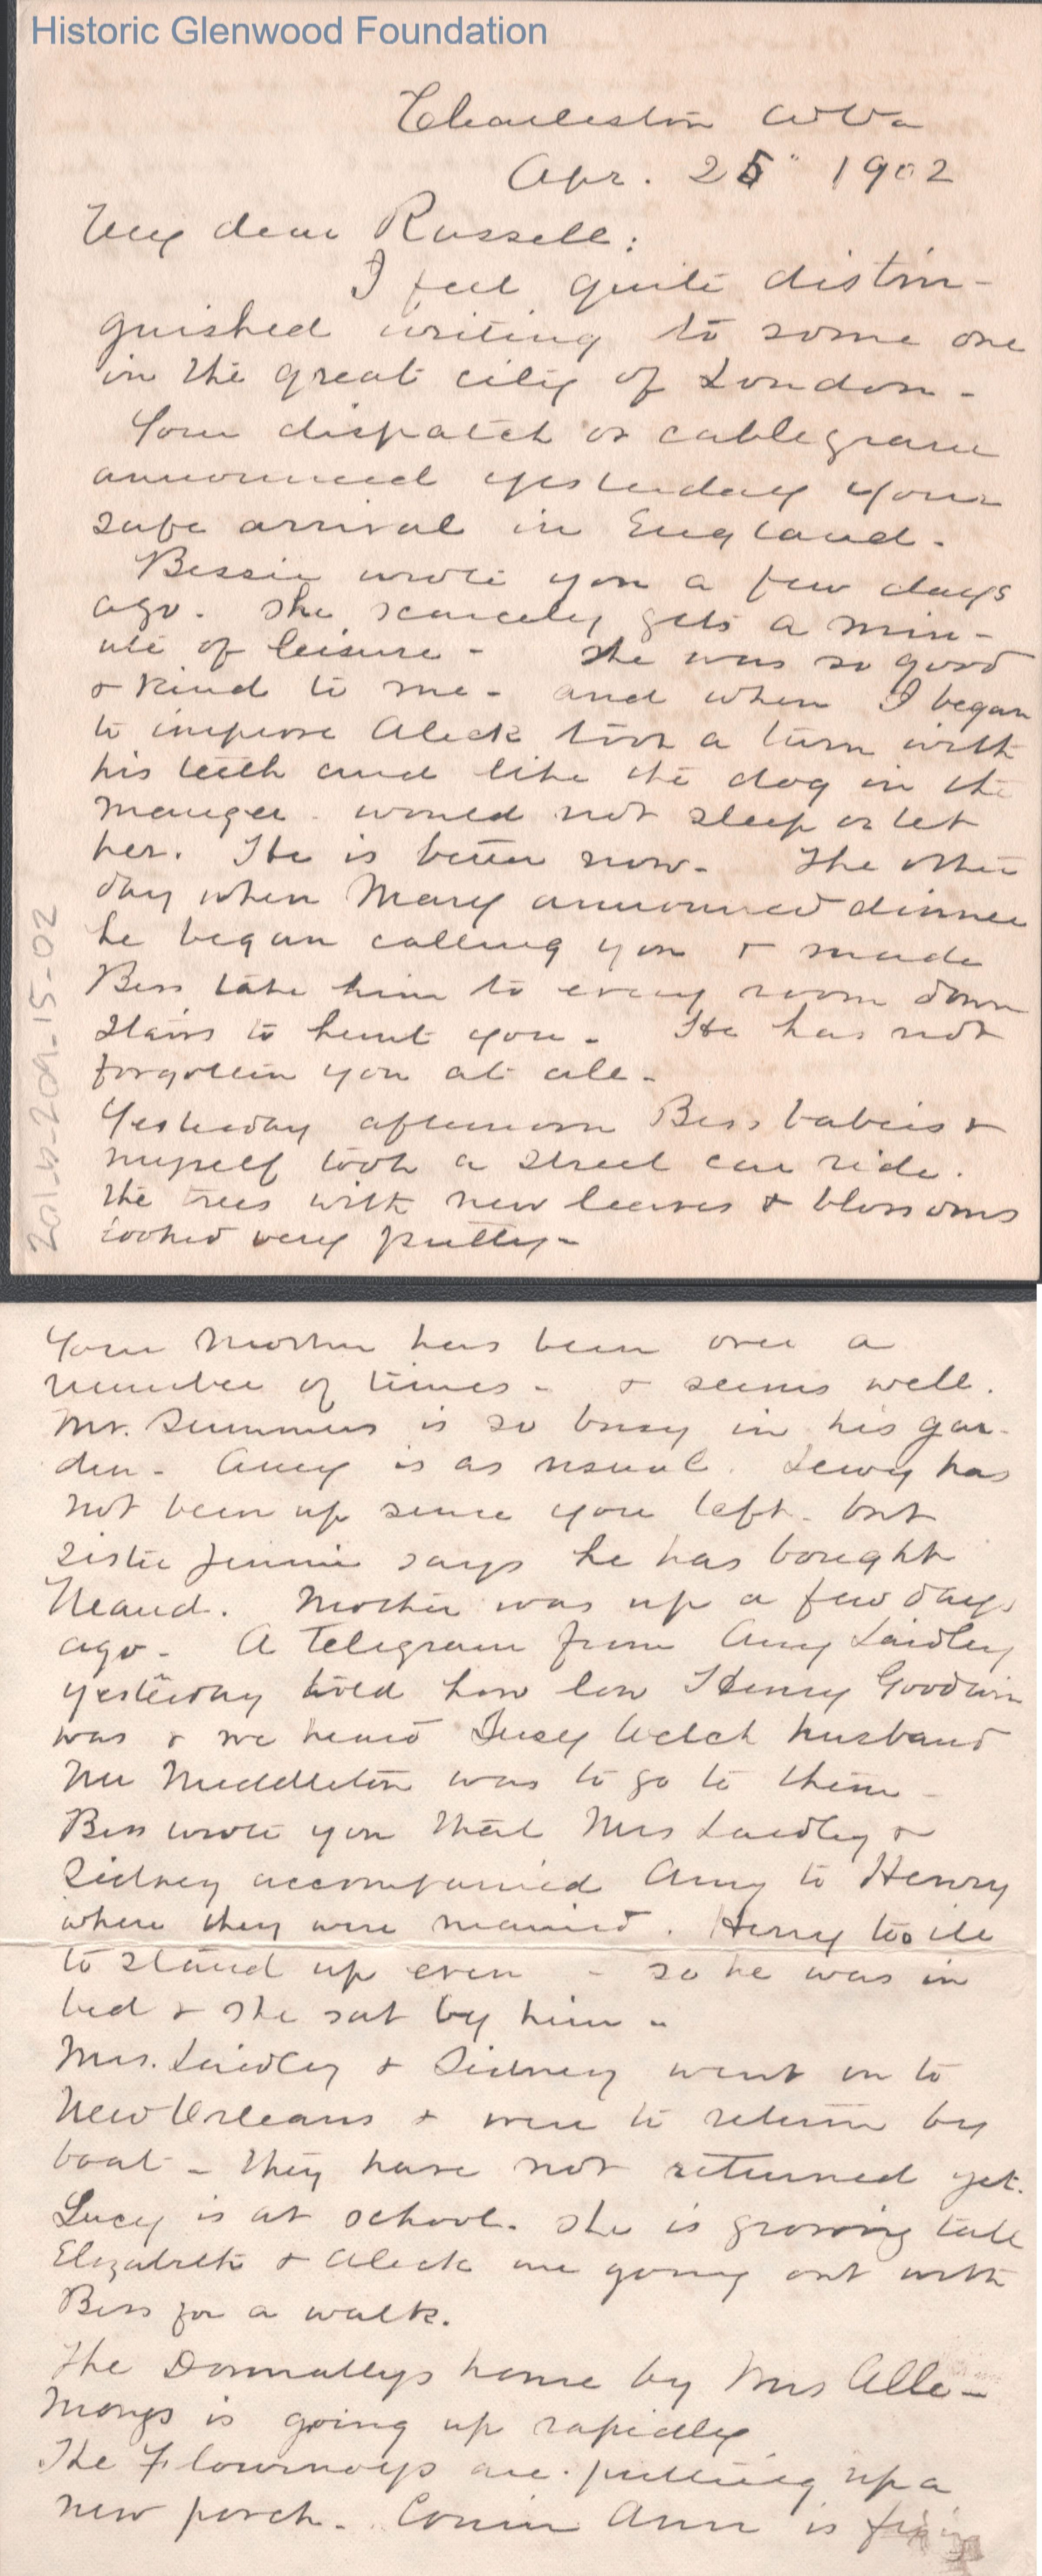 Historic Glenwood Foundation
Charleston W Va
Apr. 25" 1902
My dear Russell:
I feel quite distin-
guished writing to some one
in the great city of London -
Your dispatch or cablegram
announced yesterday your
safe arrival in England.
Bessie wrote you a few days
ago. She scarcely gets a min-
ute of leisure - She was so good
& kind to me - and when I began
to improve Aleck took a turn with
his teeth and like the dog in the
manger would not sleep or let
her. He is better now - The other
day when Mary announced dinner
he began calling you & made
Bess take him to every room down
stairs to hunt you - He has not
forgotten you at all -
Yesterday afternoon Bess babies &
myself took a street car ride.
The trees with new leaves & blossoms
looked very pretty -
2016-209-15-02
Your Mother has been over a
number of times - & seems well.
Mr. Summers is so busy in his gar-
den - Amy is as usual. Lewy has
not been up since you left - but
sister Jennie says he has bought
Maud. Mother was up a few days
ago - A Telegram from Amy Laidley
yesterday told how low Henry Goodwin
was & we heard Lucy Welch husband
Mr Middleton was to go to them -
Bess wrote you that Mrs Laidley &
Sidney accompanied Amy to Henry
where they were married. Henry too ill
to stand up even - so he was in
bed & she sat by him -
Mrs. Laidley & Sidney went on to
New Orleans & were to return by
boat - They have not returned yet.
Lucy is at school. She is growing tall
Elizabeth & Aleck are going out with
Bess for a walk.
The Donnallys home by Mrs Alle-
mongs is going up rapidly
The Flournoys are putting up a
new porch - Cousin Ann is fixing